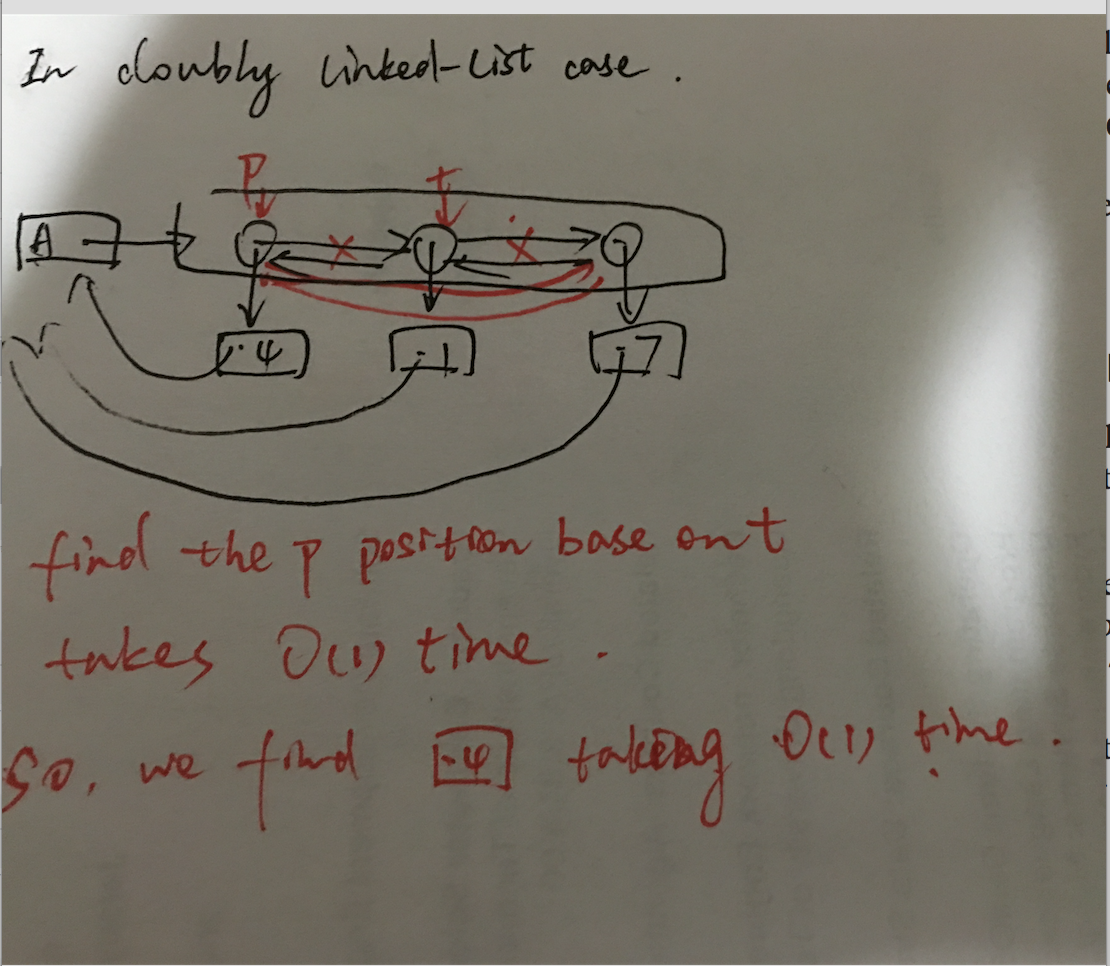 In doubly Linked-List case.
P t
A
.4 .1 .7
find the P position base on t
takes O(1) time.
So, we find .4 taking O(1) time.